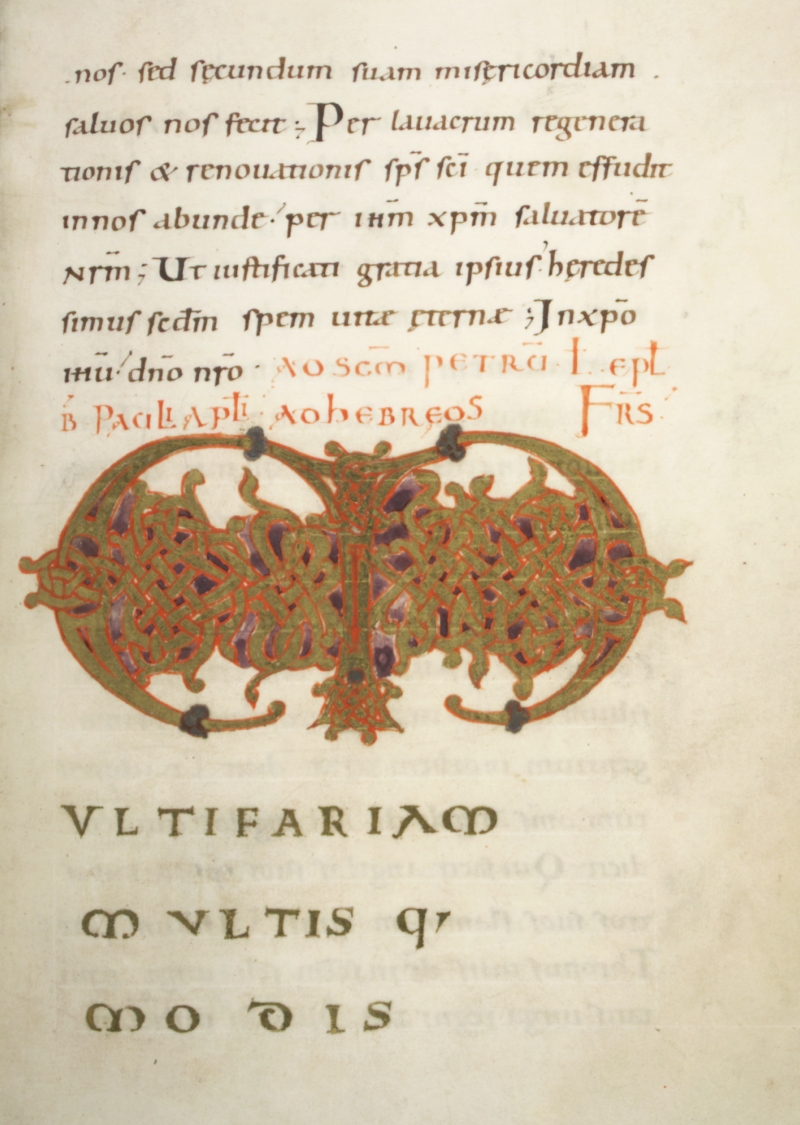 nos· sed secundum suam misęricordiam .
saluos nos fecit ; Per lauacrum regenera
tionis & renouationis sp̄s sc̄i quem effudit
in nos abunde · per ihm̄ xpm̄ saluatorē
Nr̄m ; Ut iustificati gratia ipsius hęredes
simus secdm̄ spem uitæ ęternæ ; In xp̄o
ihū dn̄o nr̄o · AD SCM̄ PETRŪ L epl̄
B PAULI APl̄I · AD hEBREOS FR̄S
M
VLTIFARIAM
MVLTIS q,
MODIS